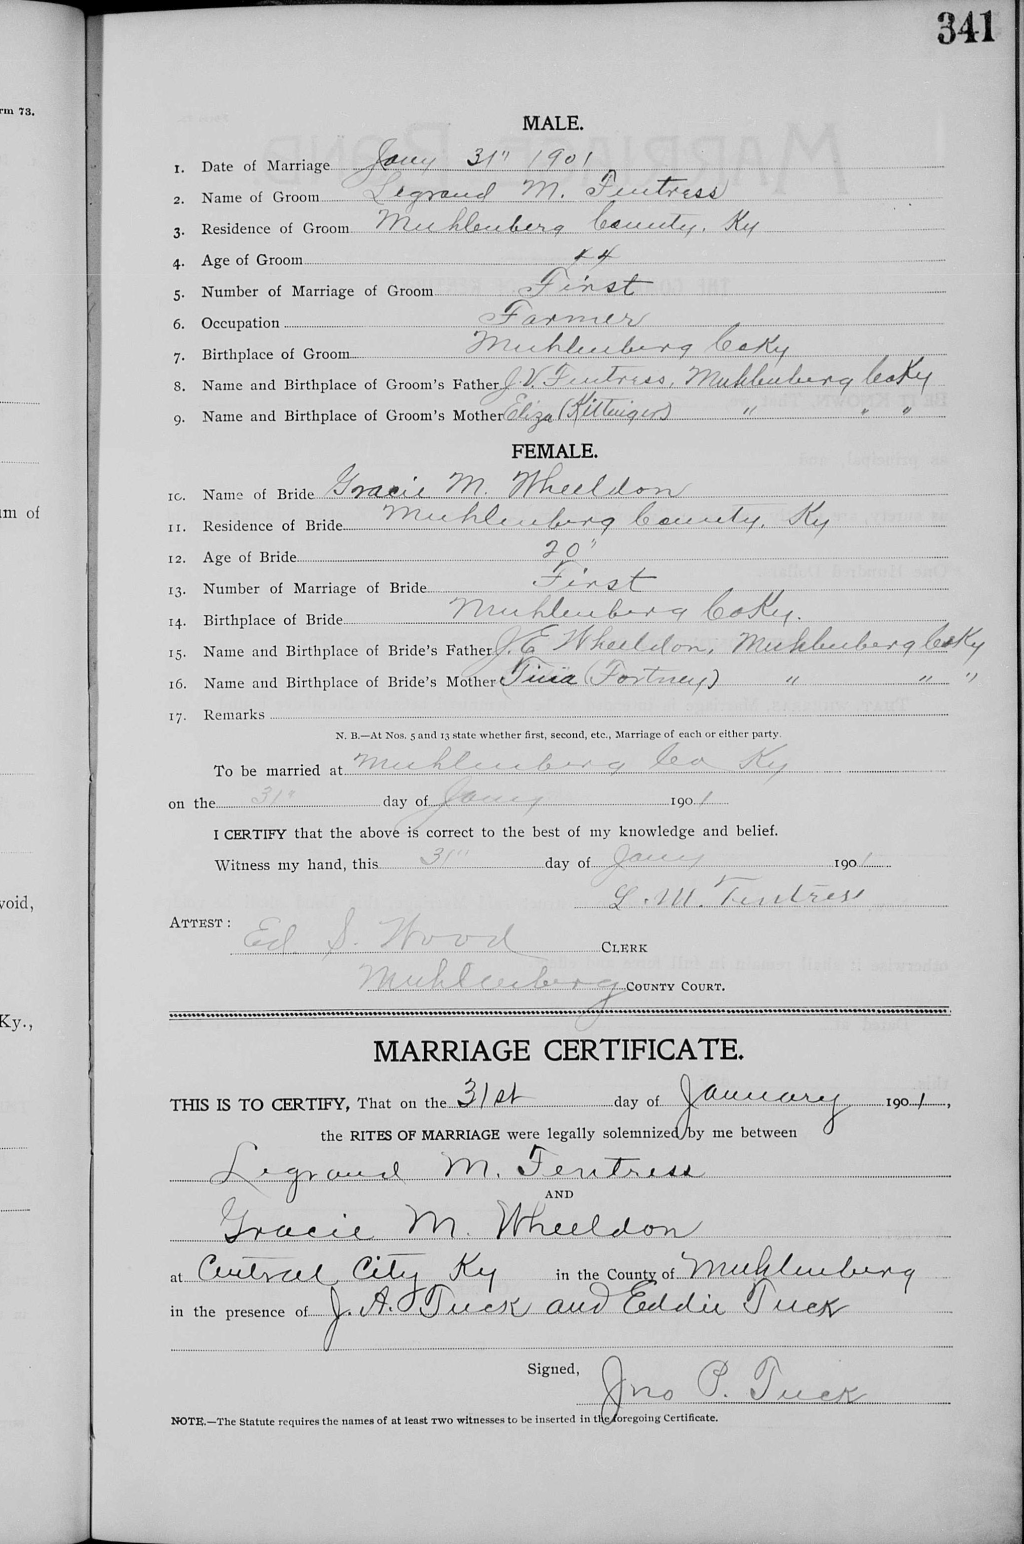 341
rm 73.
MALE.
1. Date of Marriage Jany 31" 1901
2. Name of Groom Legrand M. Fentress
3. Residence of Groom Muhlenberg County, Ky
4. Age of Groom 44
5. Number of Marriage of Groom First
6. Occupation Farmer
7. Birthplace of Groom Muhlenberg Co Ky
8. Name and Birthplace of Groom's Father J. V. Fentress, Muhlenberg Co Ky
9. Name and Birthplace of Groom's Mother Eliza (Kittinger) " " "
FEMALE.
10. Name of Bride Gracie M. Wheeldon
um of
11. Residence of Bride Muhlenberg County, Ky
12. Age of Bride 20"
13. Number of Marriage of Bride First
14. Birthplace of Bride Muhlenberg Co Ky.
15. Name and Birthplace of Bride's Father J. E Wheeldon, Muhlenberg Co Ky
16. Name and Birthplace of Bride's Mother Tina (Fortney) " " "
17. Remarks
N. B.—At Nos. 5 and 13 state whether first, second, etc., Marriage of each or either party.
To be married at Muhlenberg Co Ky
on the 31" day of Jany 1901
I CERTIFY that the above is correct to the best of my knowledge and belief.
Witness my hand, this 31" day of Jany 1901
L. M. Fentress
void,
ATTEST: Ed. S. Wood CLERK
Muhlenberg COUNTY COURT.
Ky.,
MARRIAGE CERTIFICATE.
THIS IS TO CERTIFY, That on the 31st day of January 1901,
the RITES OF MARRIAGE were legally solemnized by me between
Legrand M. Fentress
AND
Gracie M. Wheeldon
at Central City Ky in the County of Muhlenberg
in the presence of J. A. Tuck and Eddie Tuck
Signed, Jno P. Tuck
NOTE.—The Statute requires the names of at least TWO witnesses to be inserted in the foregoing Certificate.